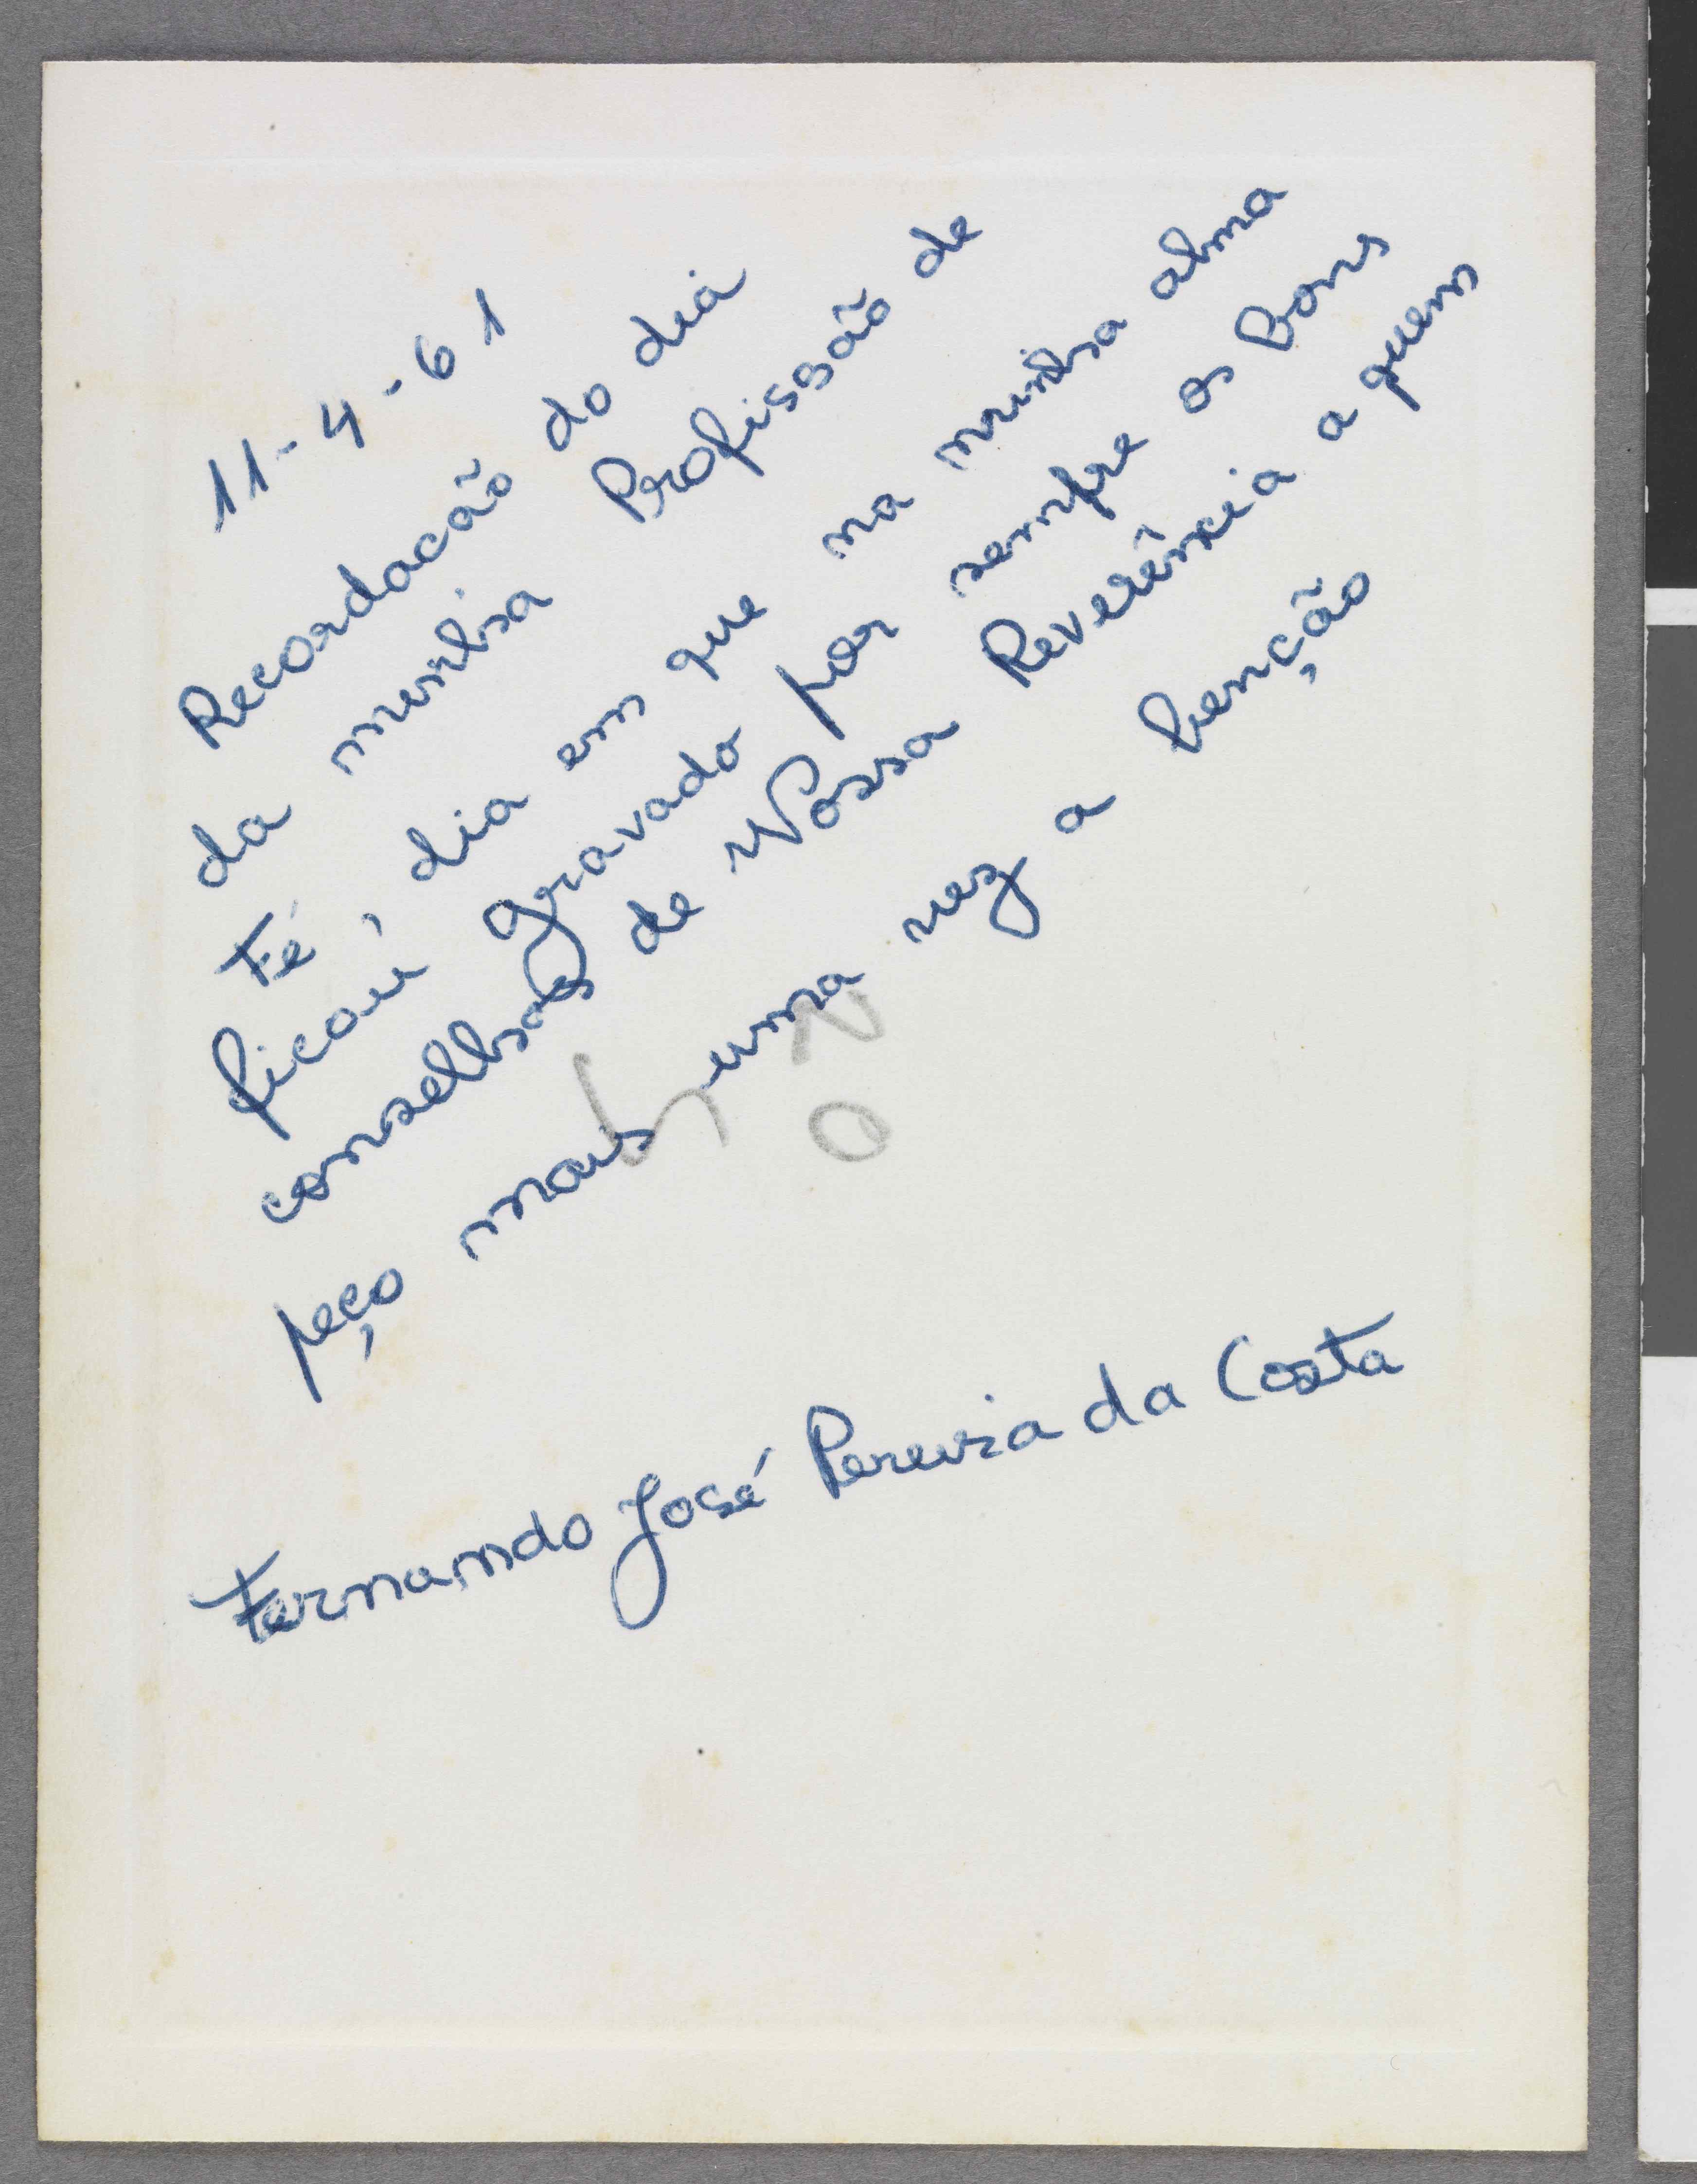 11-4-61
Recordação do dia
da minha Profissão de
Fé, dia em que na minha alma
ficou gravado por sempre os bons
conselhos de Vossa Reverência a quem
peço mais uma vez a benção
Fernando José Pereira da Costa